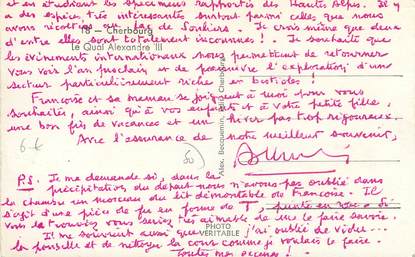 et en étudiant les specimens rapportés des Hautes Alpes. Il y
a des espèces très intéressantes surtout parmi celles que nous
avons récoltées au lac de Souliers. Je crois même que deux
d'entre elles sont totalement inconnues ! Je souhaite que
18 - Cherbourg
Le Quai Alexandre III
les évènements internationaux nous permettent de retourner
vous voir l'an prochain et de poursuivre l'exploration d'un
secteur particulièrement riche en bolides !
Françoise et sa maman se joignent à moi pour vous
souhaiter, ainsi qu'à vos enfants et à votre petite fille,
une bon fin de vacances et un hiver pas trop rigoureux.
Avec l'assurance de notre meilleur souvenir,
6 €
50
Alex. Becquemin, Cherbourg
P.S. Je me demande si, dans la
précipitation du départ nous n'avons pas oublié dans
la chambre un morceau du lit démontable de Françoise. Il
s'agit d'une pièce de fer en forme de T,
vous la trouvez vous seriez très aimable de me le faire savoir.
Je me souviens aussi que j'ai oublié de vider
la poubelle et de nettoyer la cour comme je voulais le faire.
Toutes mes excuses !
PHOTO
VÉRITABLE